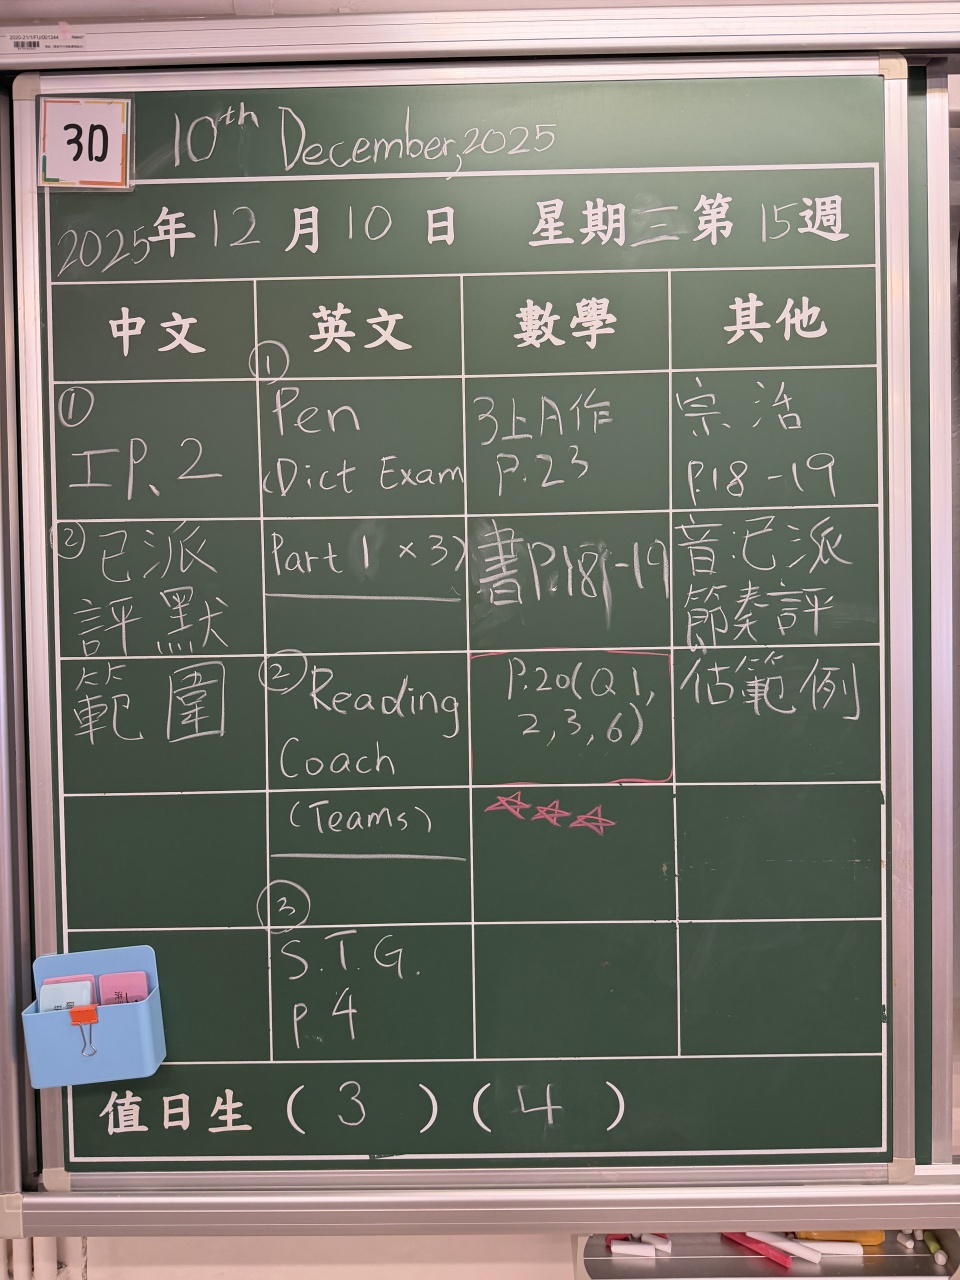 2020-21/1/FU/001344
3D
10th December, 2025
2025年12月10日 星期三第15週
中文
英文
數學
其他
①
工P.2
② 已派
評默
範圍
①
Pen
(Dict Exam
Part 1 × 3)
② Reading
Coach
(Teams)
③
S.T.G.
P.4
3上A作
P.23
書P.18-19
P.20(Q1,
2,3,6)
宗 活
P.18-19
音已派
節奏評
估範例
值日生(3)(4)